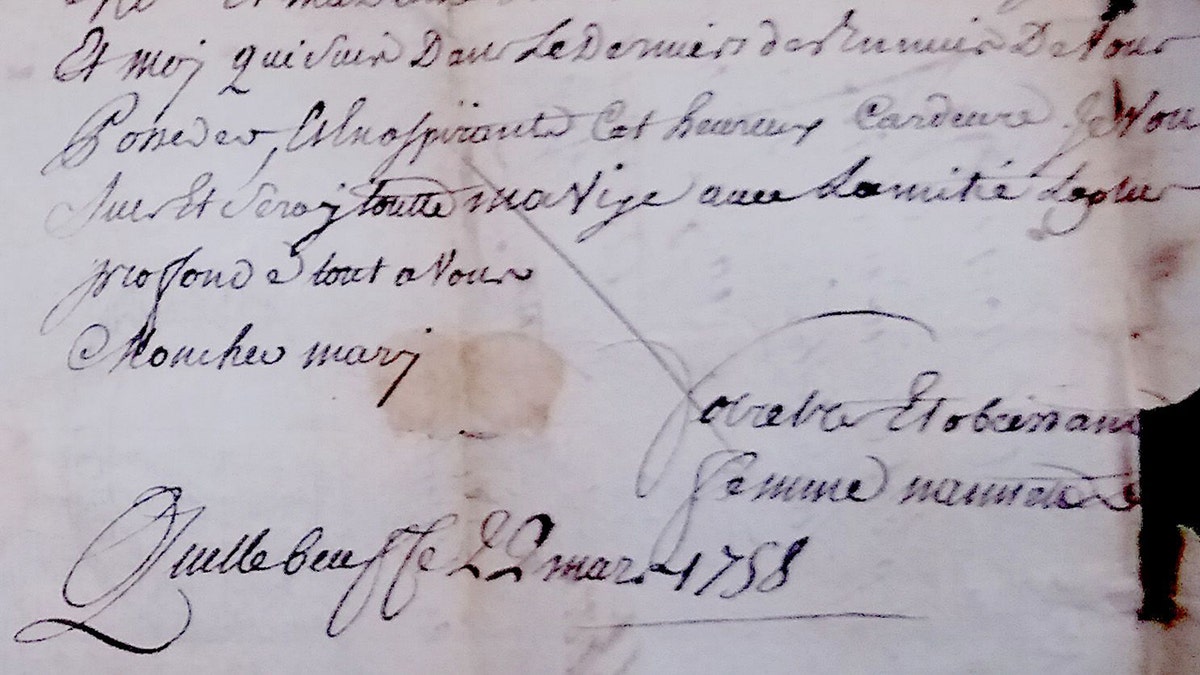 Et moy qui suis Dans Le Dernier des Ennuis De Vous
Posseder, Et En aspirants Cet heureux Cardeure Je Vou
suis Et seray toutte ma Vije avec Lamitié Laplus
proffond e tout a Vous
Moncher mary
Votretres Et obeissan
femme nannette
Quillebeuf le 22 mars 1758